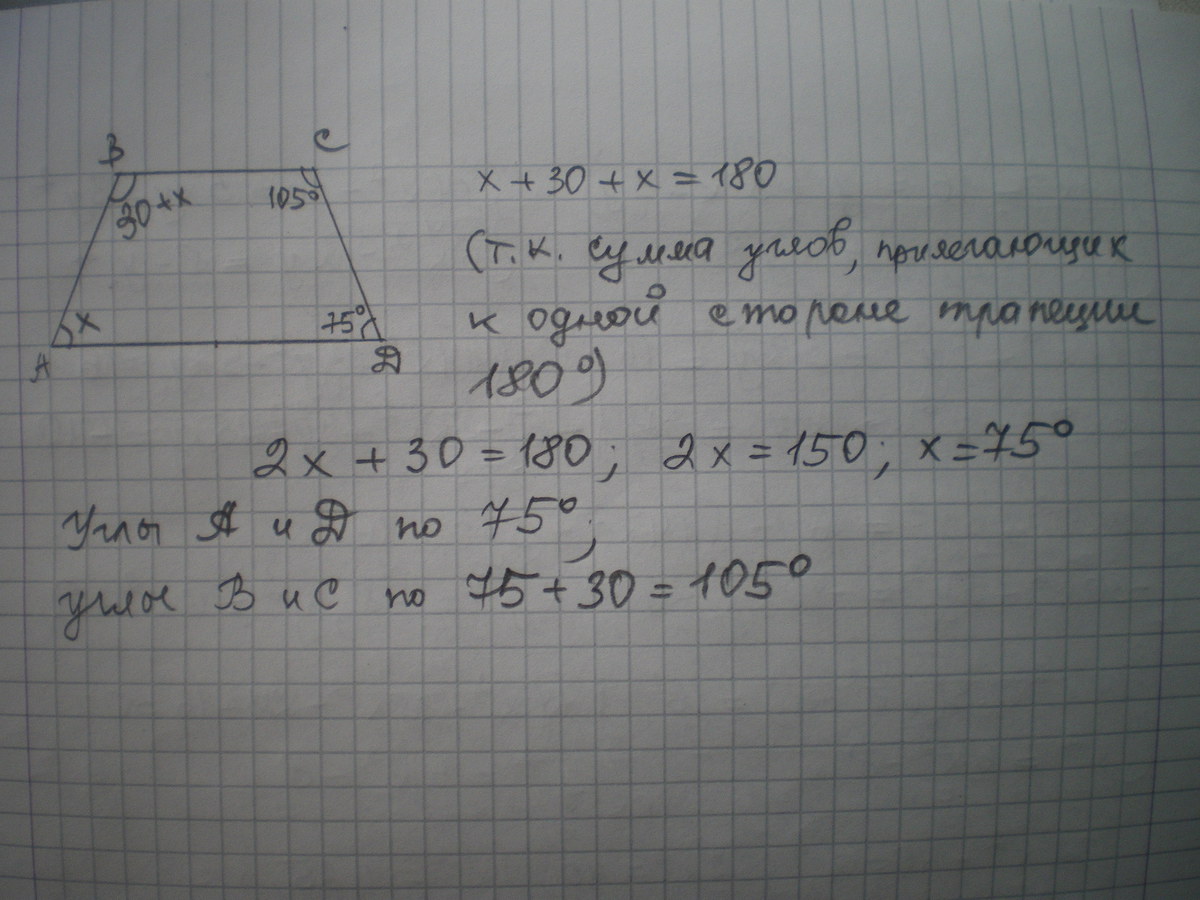 B
C
30+x
105°
x
75°
A
D
x + 30 + x = 180
(т.к. сумма углов, прилегающих
к одной стороне трапеции
180°)
2x + 30 = 180; 2x = 150; x = 75°
Углы A и D по 75°;
углы B и C по 75 + 30 = 105°